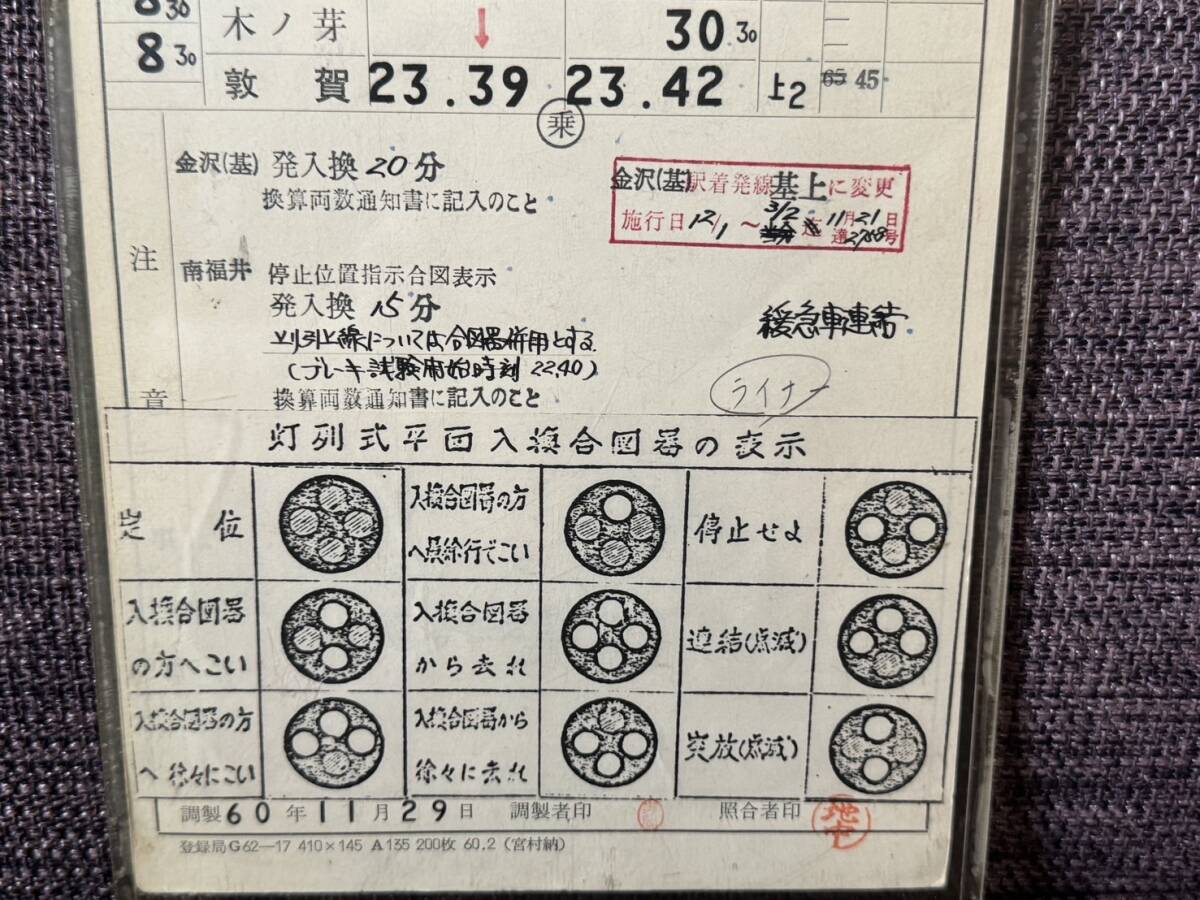 8 30
木ノ芽 ↓ 30 30
8 30
敦賀 23.39 23.42 上2 65 45
乗
金沢(基) 発入換 20分
換算両数通知書に記入のこと
金沢(基)駅着発線基上に変更
施行日 12/1 〜 3/2 迄 11月21日
達 2788号
注意
南福井 停止位置指示合図表示
発入換 15分
引上線については合図器併用とする
(ブレーキ試験開始時刻 22.40)
換算両数通知書に記入のこと
緩急車連結
ライナー
灯列式平面入換合図器の表示
定位
入換合図器の方
停止せよ
入換合図器
の方へこい
入換合図器
から去れ
連結(点滅)
入換合図器の方
へ徐々にこい
入換合図器から
徐々に去れ
突放(点滅)
調製 60年11月29日 調製者印 照合者印
登録局G62—17 410×145 A135 200枚 60.2 (宮村納)